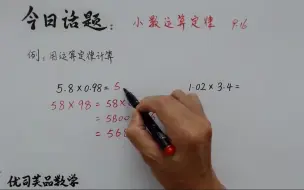 今日话题：小数运算定律 P.16
例：用运算定律计算
5.8×0.98=5
1.02×3.4=
58×98=58×
=5800
=568
优司芙品数学